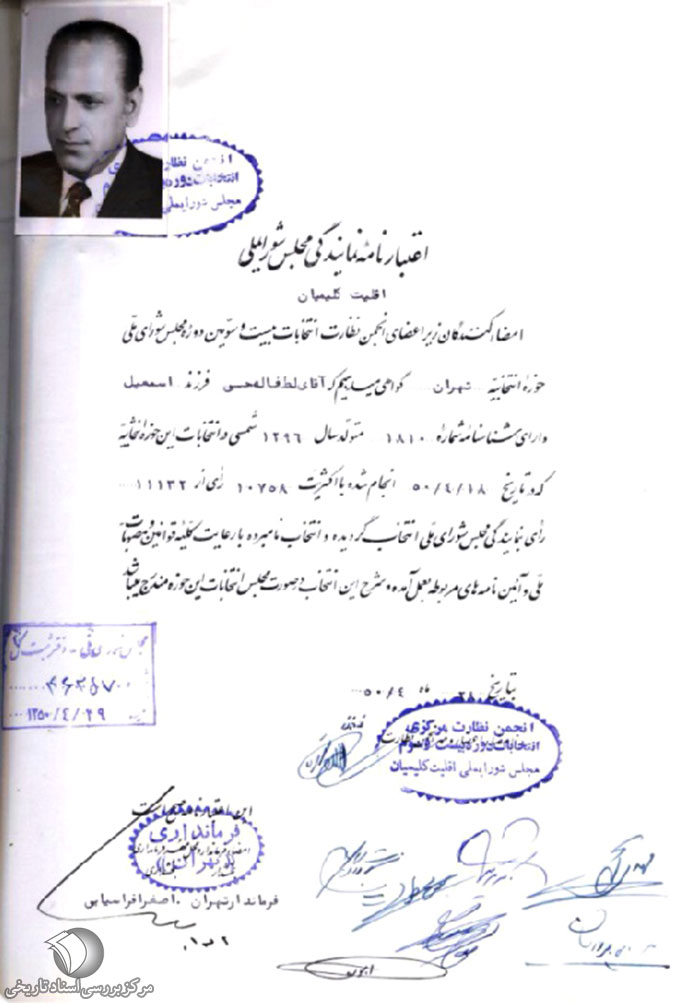 انجمن نظارت
انتخابات دوره
مجلس شورایملی
اعتبارنامه نمایندگی مجلس شورایملی
اقلیت کلیمیان
امضاء کنندگان زیر اعضای انجمن نظارت انتخابات بیست و سومین دوره مجلس شورای ملی
حوزه انتخابیه تهران گواهی میدهیم که آقای لطف‌اله حی فرزند اسمعیل
دارای شناسنامه شماره ۱۸۱۰ متولد سال ۱۲۹۶ شمسی در انتخابات این حوزه انتخابیه
که در تاریخ ۵۰/۴/۱۸ انجام شده با اکثریت ۱۰۷۵۸ رأی از ۱۱۱۳۲
رأی بنمایندگی مجلس شورای ملی انتخاب گردیده و انتخاب نامبرده با رعایت کلیه قوانین و مصوبات
ملی و آئین نامه های مربوطه بعمل آمده، شرح این انتخاب در صورت مجلس انتخابات این حوزه مندرج میباشد
مجلس شورای ملی - دفتر ثبت کل
۱۳۵۰/۴/۲۹
بتاریخ ۲۸ ماه ۵۰/۴
انجمن نظارت مرکزی
انتخابات دوره بیست و سوم
مجلس شورایملی اقلیت کلیمیان
این اعتبارنامه صحیح است
فرمانداری
تهران
فرماندار تهران . اصغر افراسیابی
مرکز بررسی اسناد تاریخی